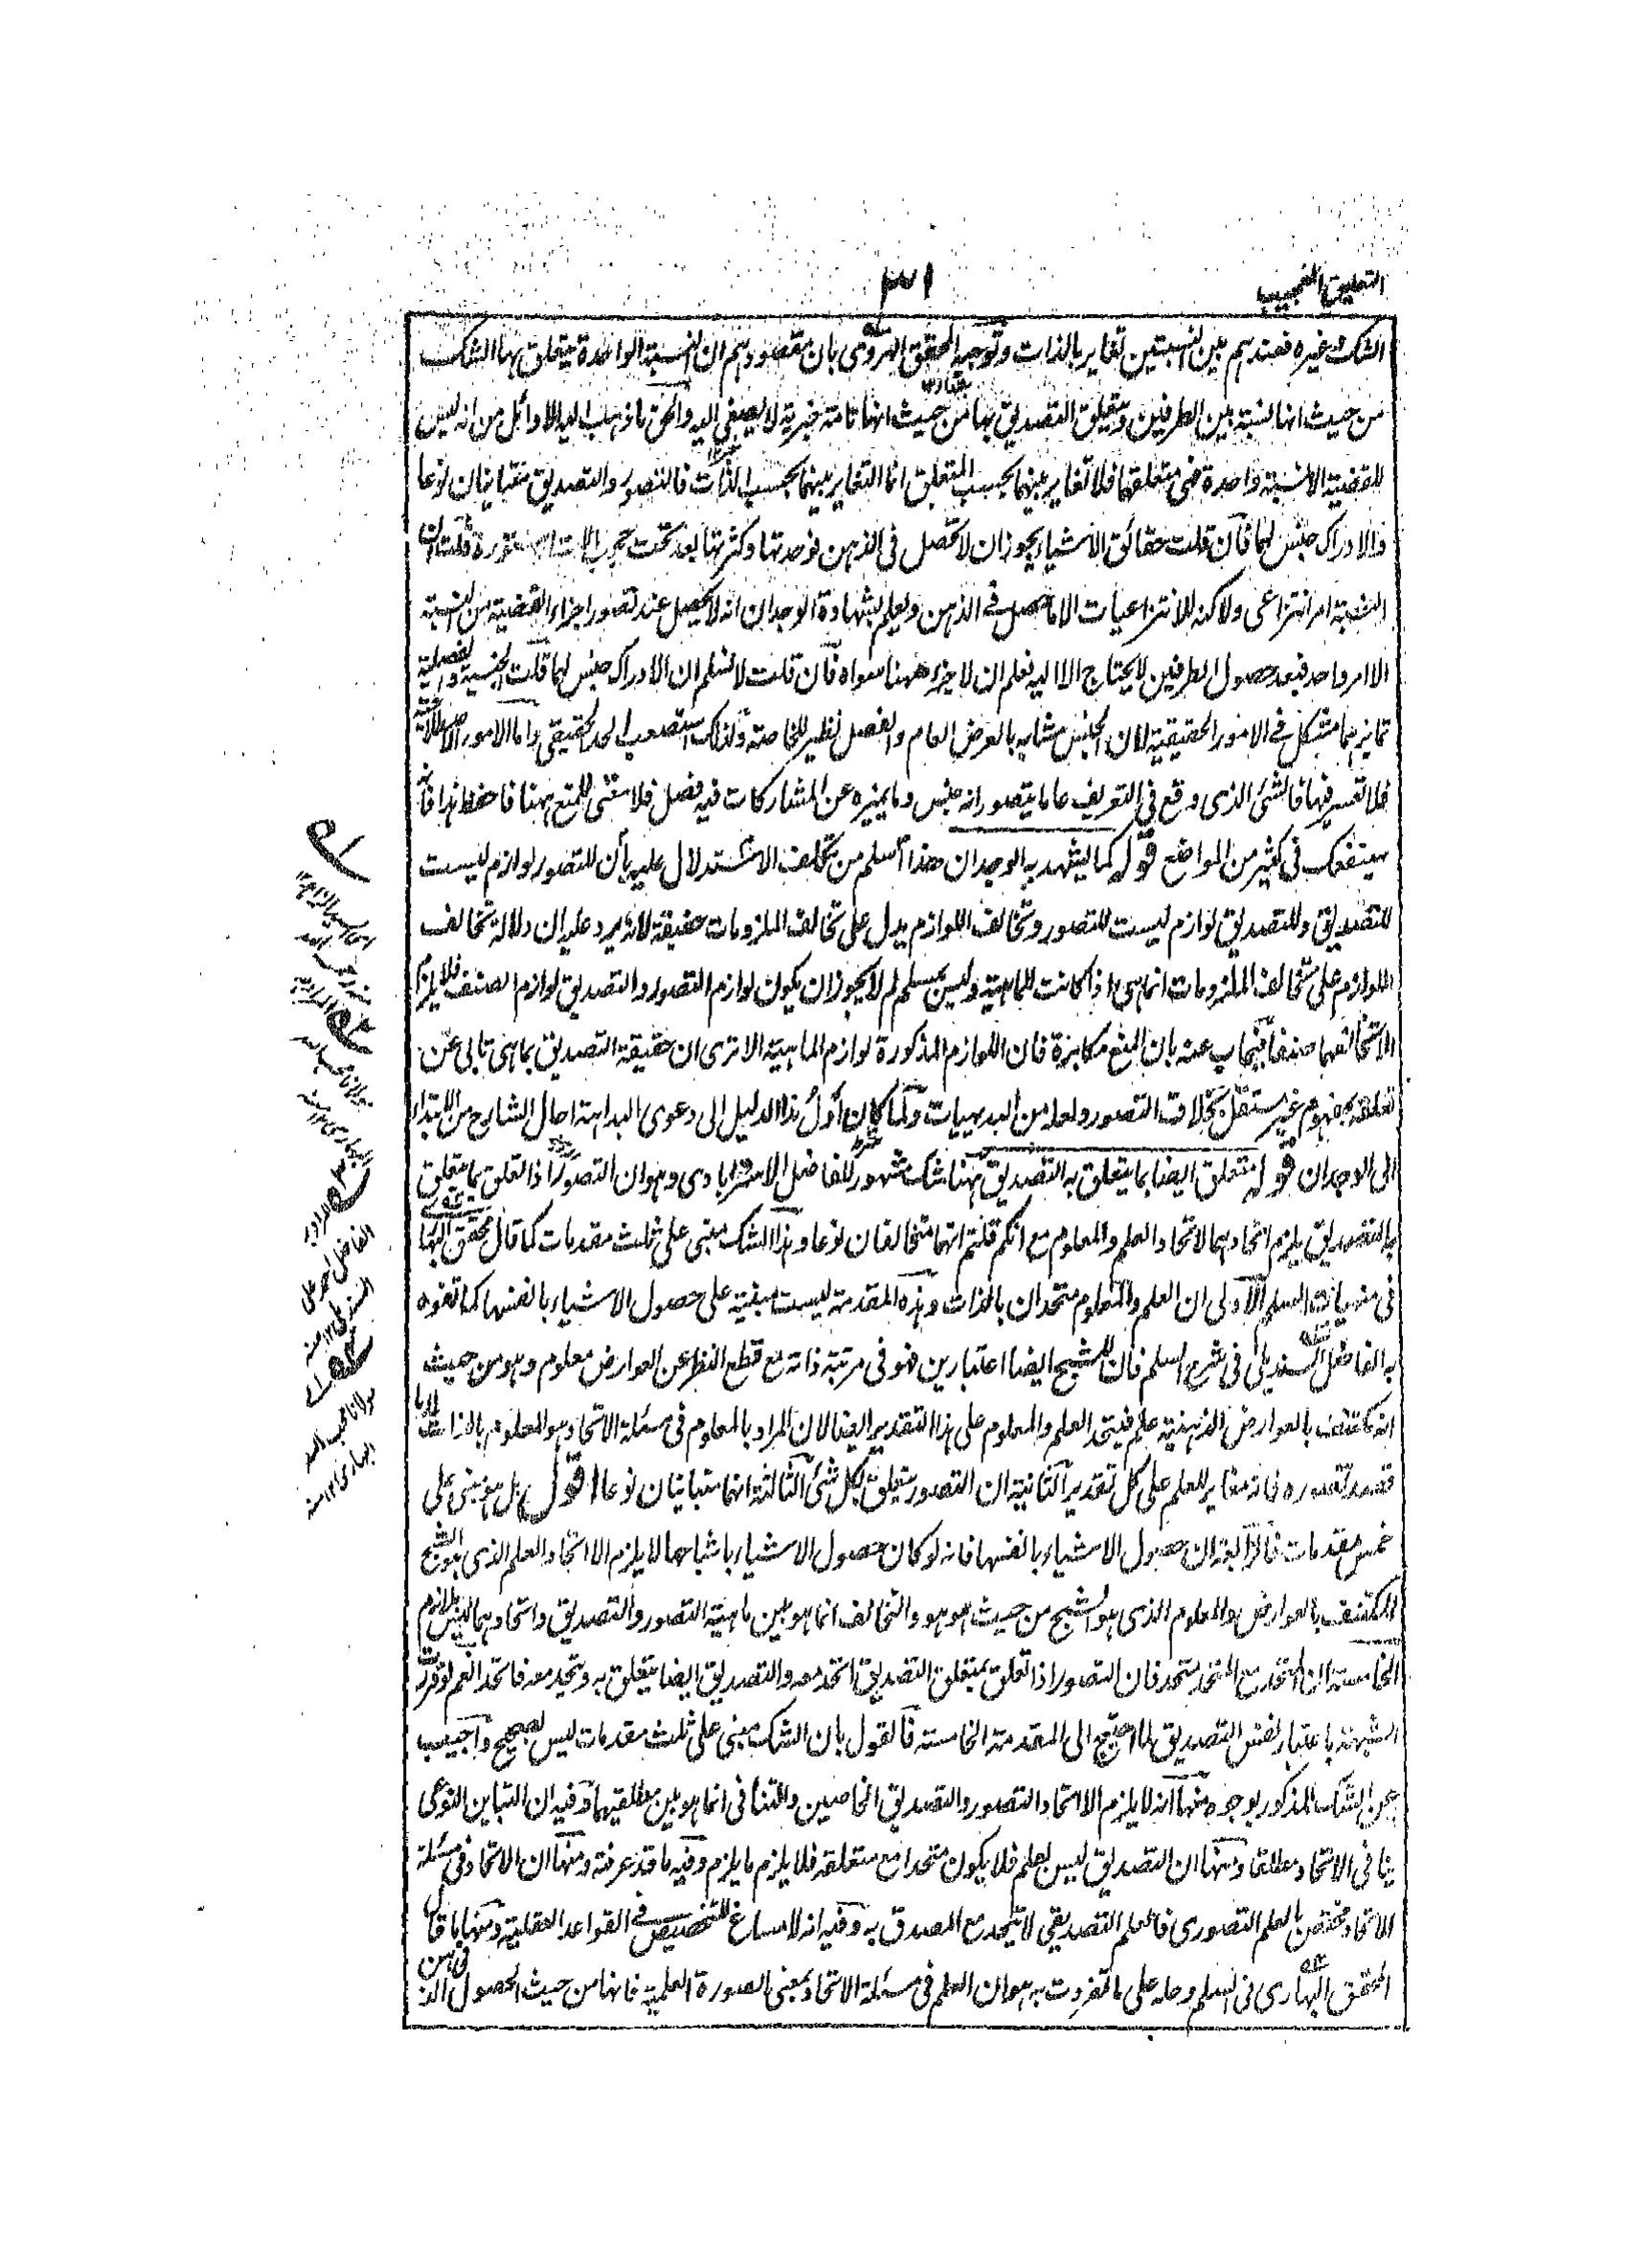 التعليق العجيب
٣١
الشك وغيره فعندهم بين النسبتين تغاير بالذات وتوجيه المحقق الهروى بان مقصودهم ان النسبة الواحدة يتعلق بها الشك
من حيث انها نسبة بين الطرفين ويتعلق التصديق بها من حيث انها تامة خبرية لا يصغى اليه والحق ما ذهب اليه الاوائل من انه ليس
للقضية الا نسبة واحدة هى متعلقهما فلا تغاير بينهما بحسب المتعلق انما التغاير بينهما بحسب الذات فالتصور والتصديق متباينان نوعا
والادراك جنس لهما فان قلت حقائق الاشياء يجوز ان لا تحصل فى الذهن فوحدتها وكثرتها بعد تحت حجب مستورة قلت ان
النسبة امر انتزاعى ولا كنه للانتزاعيات الا ما حصل فى الذهن ويعلم بشهادة الوجدان انه لا يحصل عند تصور اجزاء القضية من النسبة
الا امر واحد فبعد حصول الطرفين لا يحتاج الا اليه فعلم ان لا جزء ههنا سواه فان قلت لا نسلم ان الادراك جنس لهما قلت الجنسية والفصلية
تمايزهما مشكل فى الامور الحقيقية لان الجنس مشابه بالعرض العام والفصل نظير للخاصة ولذلك استصعب الحد الحقيقى واما الامور الاصطلاحية
فلا تعسر فيها فالشئ الذى وقع فى التعريف عاما يتصور انه جنس وما يميزه عن المشاركات فيه فصل فلا معنى للمنع ههنا فاحفظ هذا فانه
سينفعك فى كثير من المواضع قوله كما يشهد به الوجدان هذا أسلم من تكلف الاستدلال عليه بأن للتصور لوازم ليست
للتصديق وللتصديق لوازم ليست للتصور وتخالف اللوازم يدل على تخالف الملزومات حقيقة لانه يرد عليه ان دلالة تخالف
اللوازم على تخالف الملزومات انما هى اذا كانت للماهية وليس بمسلم لم لا يجوز ان يكون لوازم التصور والتصديق لوازم الصنف فلا يلزم
الا تخالفهما صنفا فيجاب عنه بان المنع مكابرة فان اللوازم المذكورة لوازم الماهية الا ترى ان حقيقة التصديق بما هى تابى عن
تعلقه بمفهوم غير مستقل بخلاف التصور ولعله من البديهيات ولما كان أول هذا الدليل الى دعوى البداهة احال الشارح من الابتداء
الى الوجدان قوله متعلق ايضا بما يتعلق به التصديق ههنا شك مشهور للفاضل الاسترابادى وهو ان التصور اذا تعلق بما يتعلق
به التصديق يلزم اتحادهما لاتحاد العلم والمعلوم مع انكم قلتم انهما متخالفان نوعا وهذا الشك مبنى على ثلث مقدمات كما قال محقق البهار
فى منهيات السلم الاولى ان العلم والمعلوم متحدان بالذات وهذه المقدمة ليست مبنية على حصول الاشياء بانفسها كما تفوه
به الفاضل السنديلى فى شرح السلم فان للشبح ايضا اعتبارين فهو فى مرتبة ذاته مع قطع النظر عن العوارض معلوم وهو من حيث
انه مكتنف بالعوارض الذهنية علم فيتحد العلم والمعلوم على هذا التقدير ايضا لان المراد بالمعلوم فى مسئلة الاتحاد هو المعلوم بالذات لا ما
قصد تصوره فانه مغاير للعلم على كل تقدير الثانية ان التصور يتعلق بكل شئ الثالثة انهما متباينان نوعا اقول بل هو مبنى على
خمس مقدمات فالرابعة ان حصول الاشياء بانفسها فانه لو كان حصول الاشياء باشباحها لا يلزم الا اتحاد العلم الذى هو الشبح
المكتنف بالعوارض والمعلوم الذى هو الشبح من حيث هو هو والتخالف انما هو بين ماهية التصور والتصديق واتحادهما ليس بلازم
الخامسة ان المتحد مع المتحد متحد فان التصور اذا تعلق بمتعلق التصديق اتحد معه والتصديق ايضا يتعلق به ويتحد معه فاتحدا نعم لو قررت
الشبهة باعتبار نفس التصديق لما احتيج الى المقدمة الخامسة فالقول بان الشك مبنى على ثلث مقدمات ليس بصحيح واجيب
عن الشك المذكور بوجوه منها انه لا يلزم الا اتحاد التصور والتصديق الخاصين والتنافى انما هو بين مطلقيهما وفيه ان التباين النوعى
ينافى الاتحاد مطلقا ومنها ان التصديق ليس بعلم فلا يكون متحدا مع متعلقه فلا يلزم ما يلزم وفيه ما قد عرفته ومنها ان الاتحاد فى مسئلة
الاتحاد مختص بالعلم التصورى فالعلم التصديقى لا يتحد مع المصدق به وفيه انه لا مساغ للتخصيص فى القواعد العقلية ومنها ما قال
المحقق البهارى فى السلم وحله على ما تفردت به هو ان العلم فى مسئلة الاتحاد بمعنى الصورة العلمية فانها من حيث الحصول فى الذهن
الفاضل احمد على
السنديلى ١٢ منه
مولانا محب الله
البهارى ١٢ منه